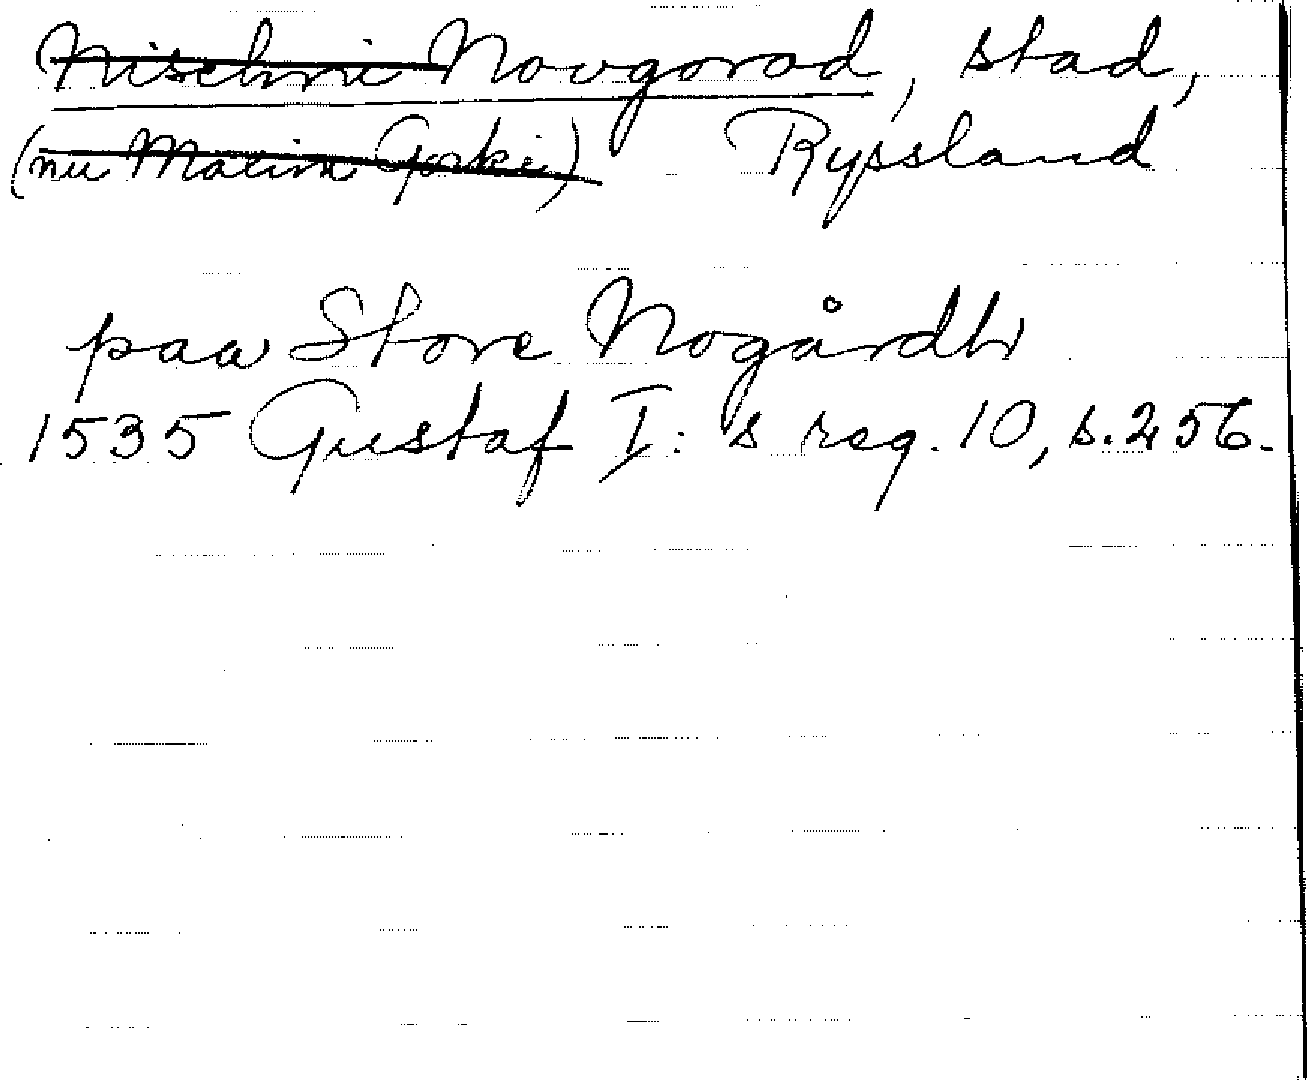 Nischni Novgorod, stad,
(nu Maxim Gorki) Ryssland
paa Store Nogårdh
1535 Gustaf I:s reg. 10, s. 256.